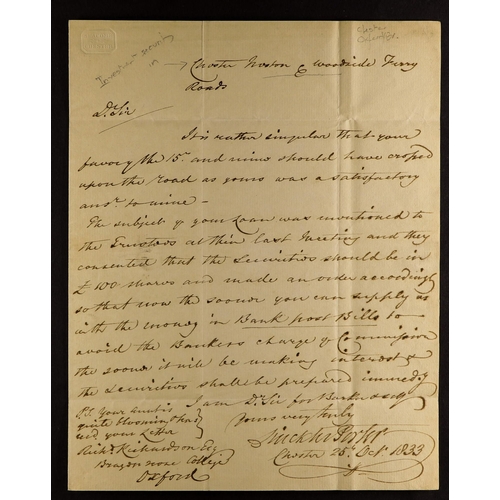 Investment security
in
Chester
Chester Neston & Woodside Ferry
Roads
Dr. Sir
It is rather singular that your
favor of the 15th. and mine should have crossed
upon the Road as yours was a satisfactory
ansr. to mine –
The subject of your Loan was mentioned to
the Trustees at their last Meeting and they
consented that the Securities should be in
£100 shares and made an order accordingly
so that now the sooner you can supply us
with the money in Bank post Bills to
avoid the Bankers charge of Commission
the sooner it will be making interest &
the Securities shall be prepared immedy.
I am Dr. Sir for Barker & self
Yours very truly
Chester 25th. Octr. 1833
P.S. Your Aunt is
quite blooming & had
recd. your Letter
Richd. Richardson Esq
Brazen nose College
Oxford